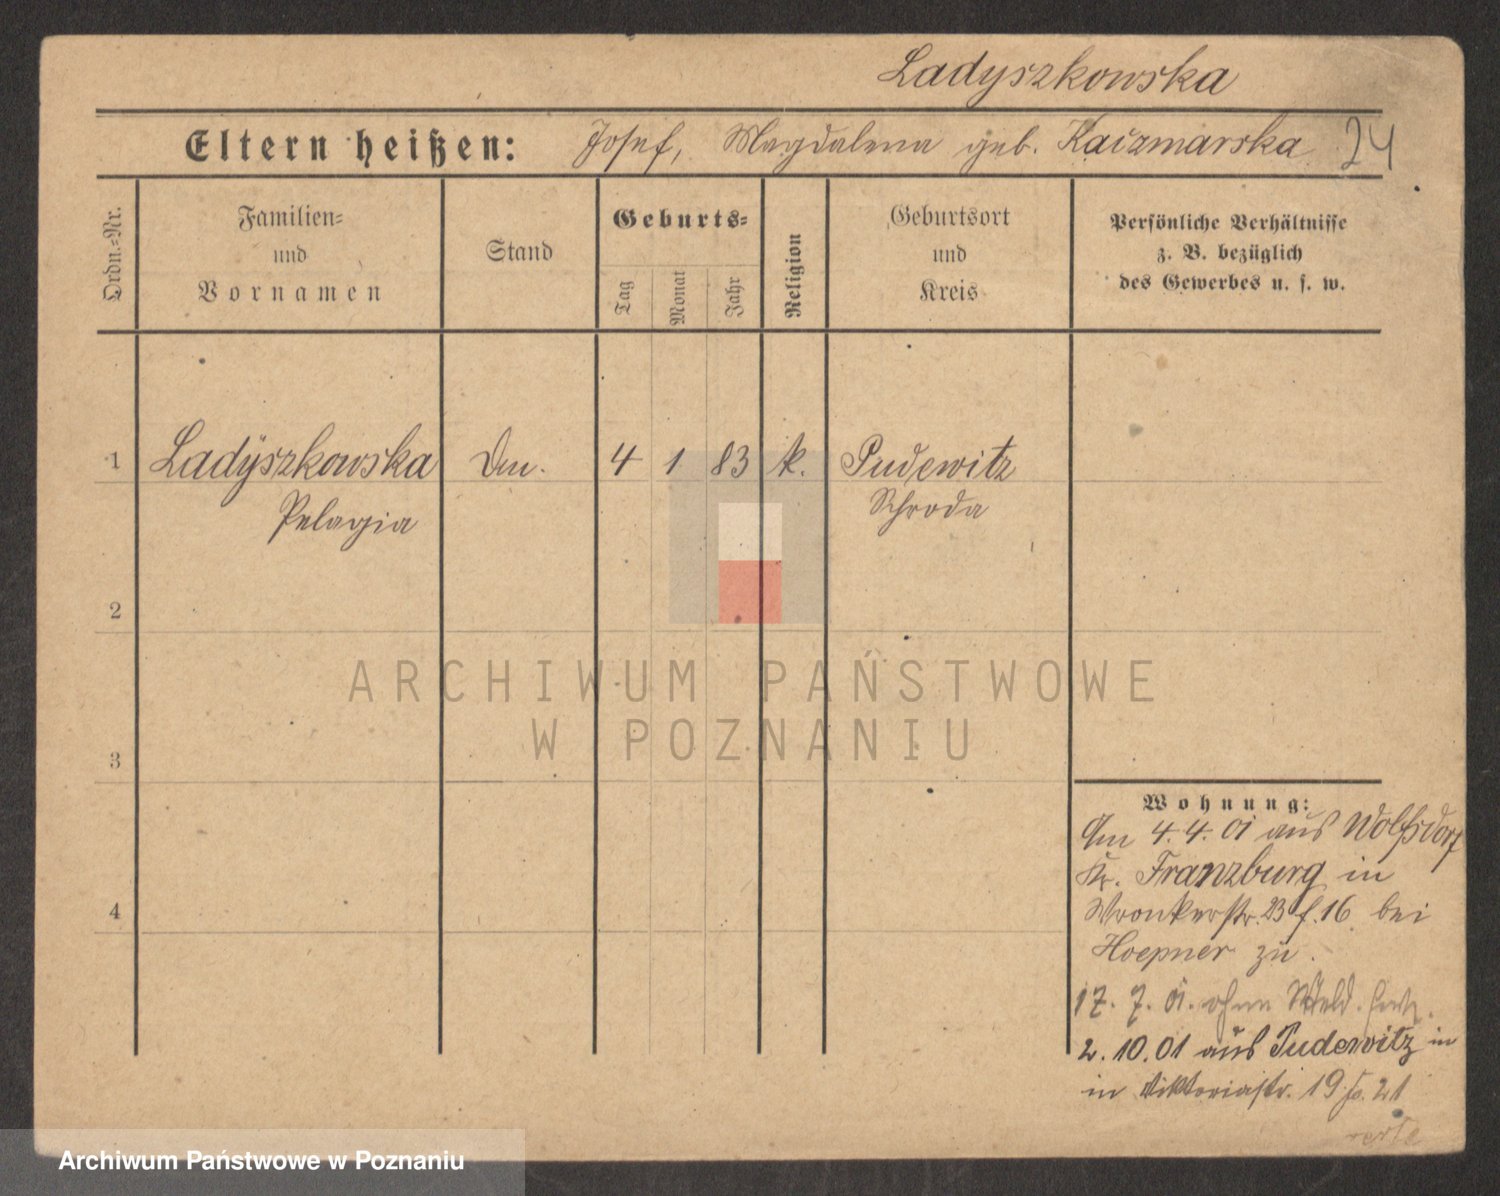 Ladyszkowska
Eltern heißen: Josef, Magdalena geb. Kaczmarska 24
Ordn.-Nr.
Familien-
und
Vornamen
Stand
Geburts-
Tag
Monat
Jahr
Religion
Geburtsort
und
Kreis
Persönliche Verhältnisse
z. B. bezüglich
des Gewerbes u. s. w.
1 Ladyszkowska 4 1 83 k. Pudewitz
Pelagia Schroda
2
3
4
ARCHIWUM PAŃSTWOWE
W POZNANIU
Wohnung:
Am 4. 4. 01 aus Wolfsdorf
Kr. Franzburg in
Wronkerstr. 23 f. 16 bei
Hoepner zu.
17. 7. 01. ohne Meld.
2. 10. 01 aus Pudewitz in
in Viktoriastr. 19 21
Archiwum Państwowe w Poznaniu